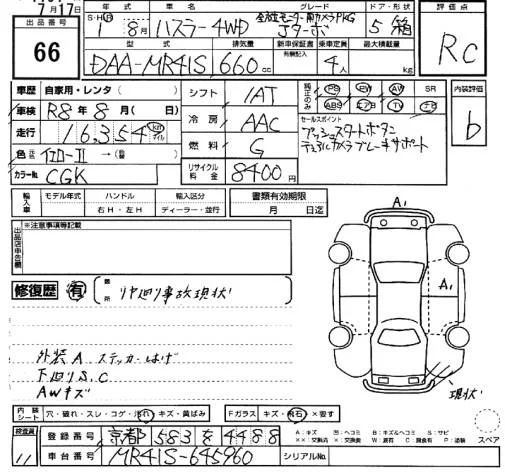 7月17日
出品番号
66
S・H R 年式 1年 8月
車名 ハスラー 4WD
グレード 全方位モニター用カメラPKG Jターボ
ドア・形状 5 箱
型式 DAA-MR41S
排気量 660 cc
新車保証書 有 後記入
乗車定員 4人
最大積載量 kg
評価点 RC
車歴 自家用・レンタ( )
車検 R8年 8月( 日)
走行 16,354 km マイル
色 元色 イエロー-II → (替)
カラーNo. CGK
シフト IAT
冷房 AAC
燃料 G
リサイクル料金 8400円
純正のみ PS PW AW SR
ABS エアB TV ナビ
セールスポイント
プッシュスタートボタン
デュアルカメラブレーキサポート
内装評価 b
輸入車 モデル年式 ハンドル 右H・左H 輸入区分 ディーラー・並行
書類有効期限 月 日迄
出品店申告欄
※注意事項等記載
修復歴 有 箇所 リヤ廻り事故現状
外装A ステッカーはげ
下廻りS,C
AWキズ
A1
A1
現状
内装シート 穴・破れ・スレ・コゲ・汚れ・キズ・黄ばみ
Fガラス キズ・飛石・×要す
A:キズ U:ヘコミ B:キズ&ヘコミ S:サビ
××:交換済 ×:交換要 W:波有 C:腐食有 P:塗装
スペア
検査員 11
登録番号 京都 583 を 4488
車台番号 MR41S-645960
シリアルNo.